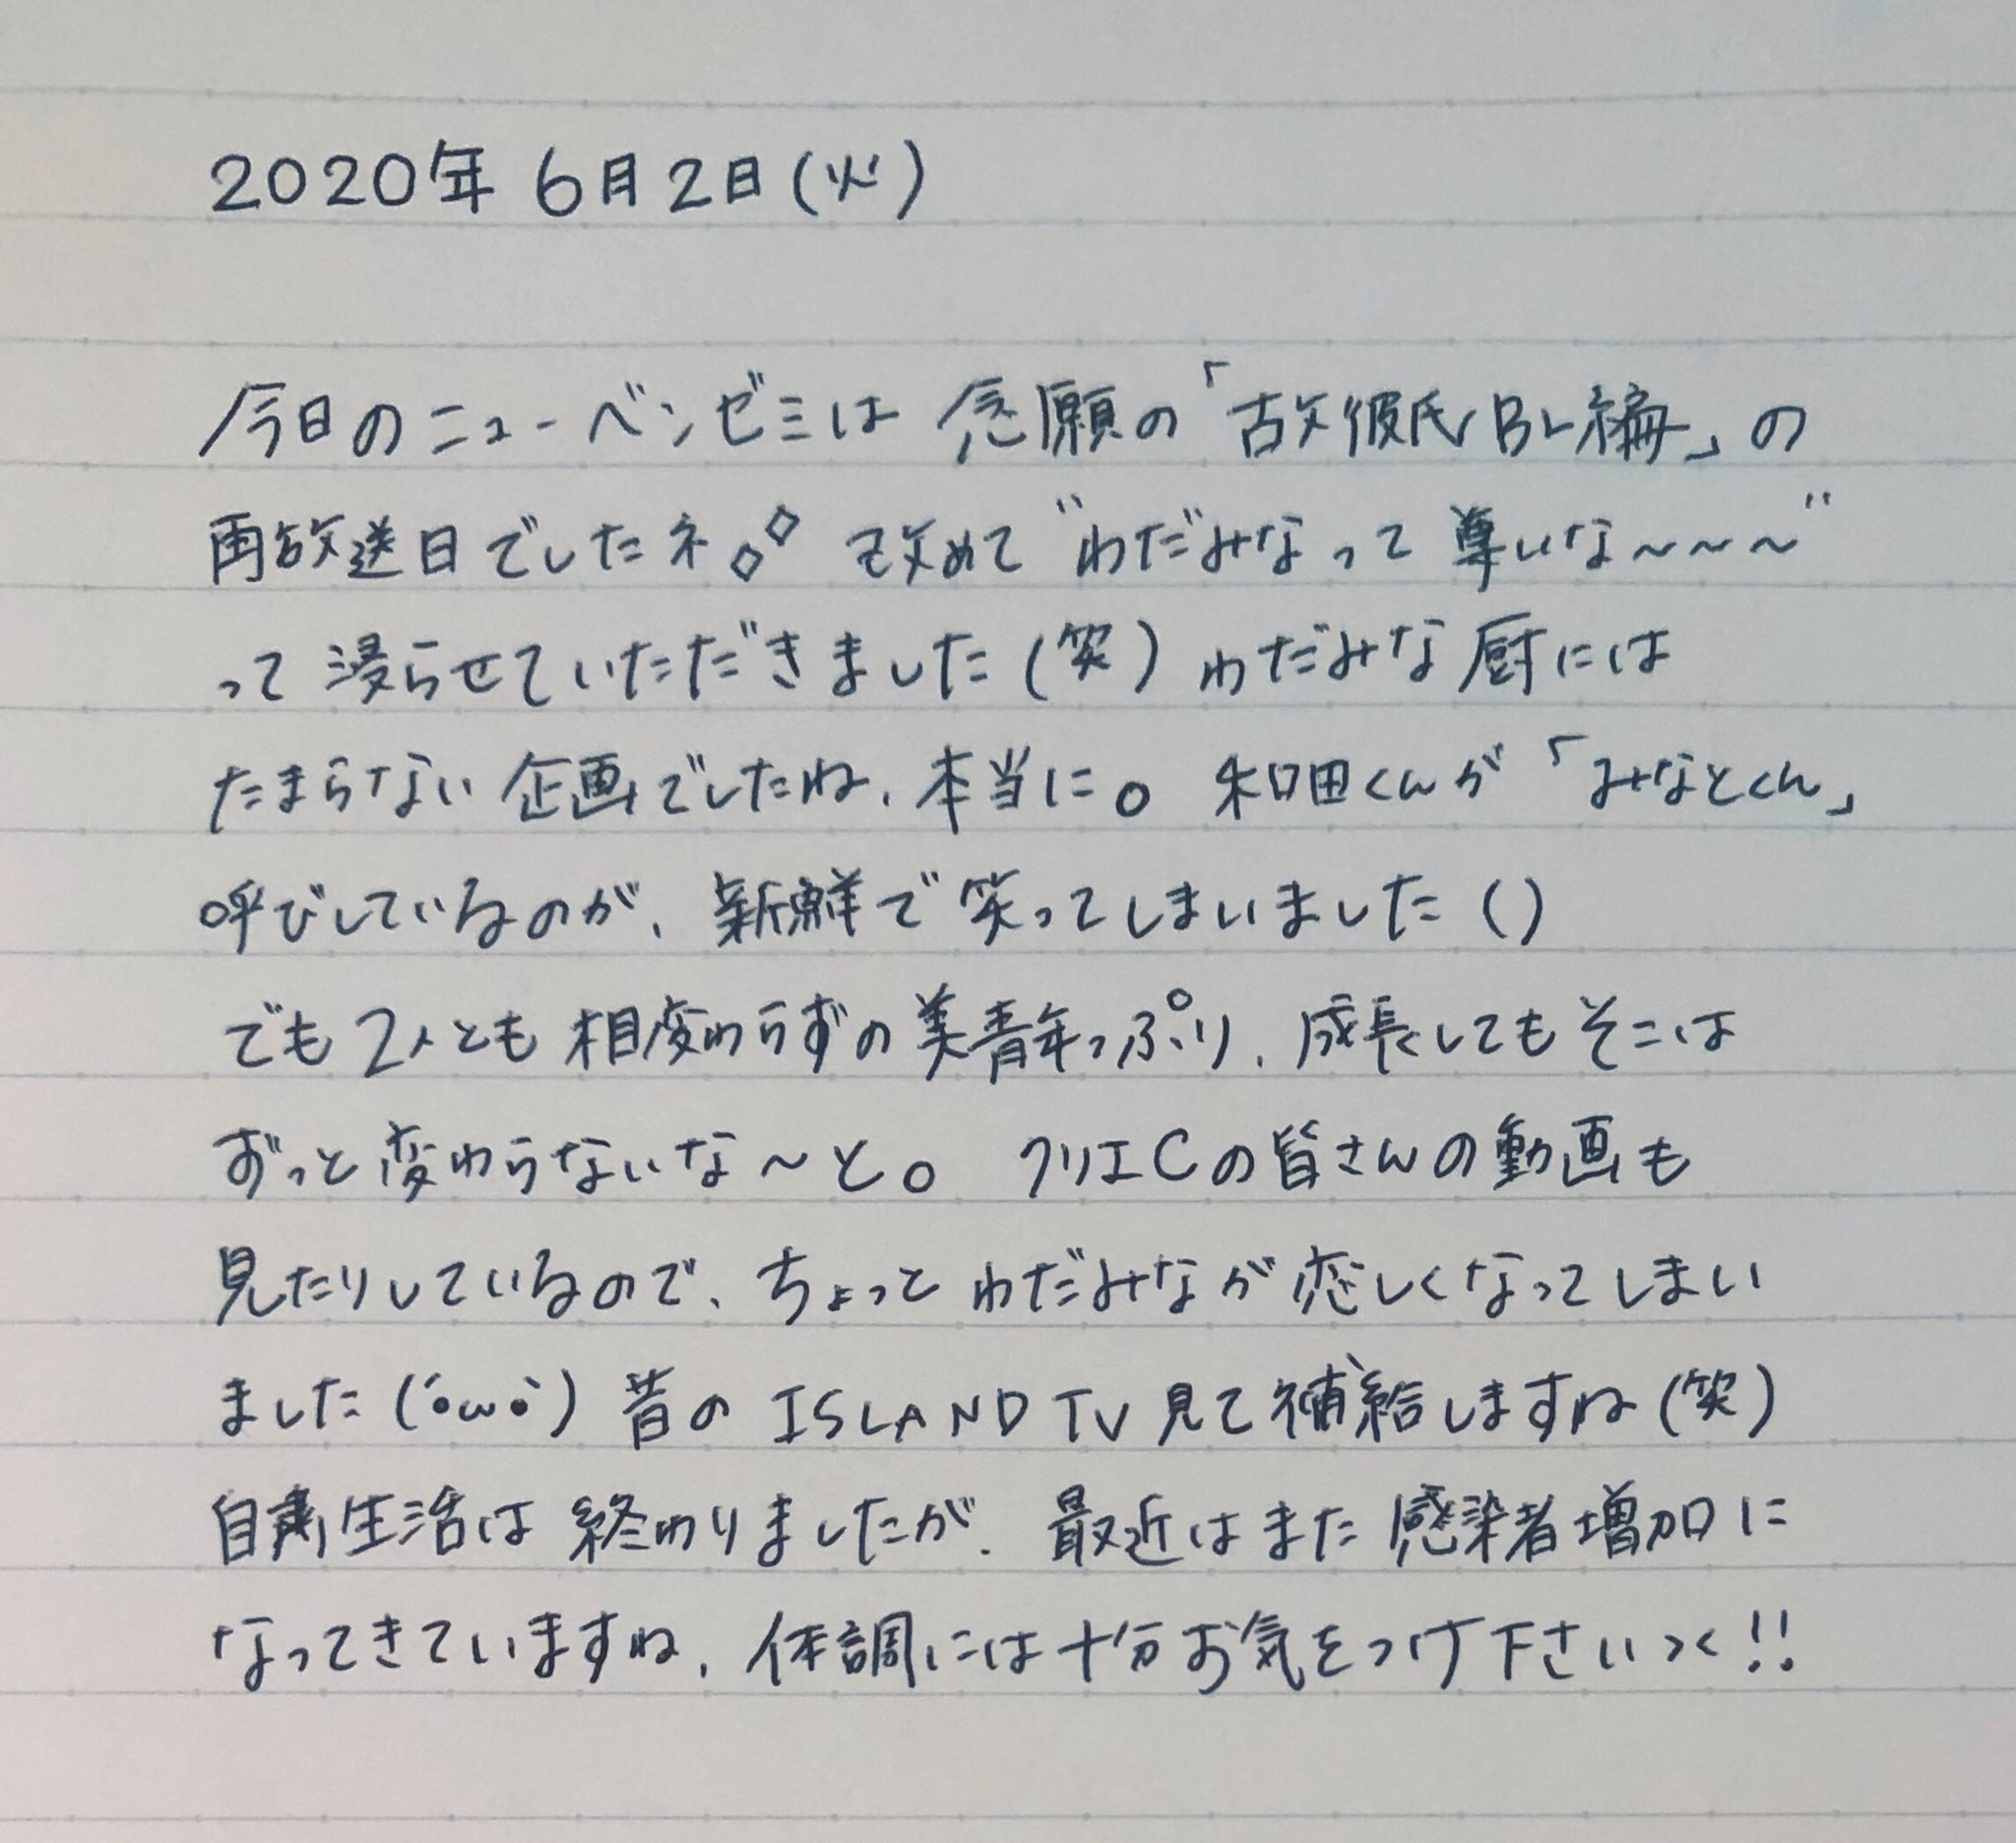 2020年 6月2日(火)
今日のニューベンゼミは 念願の「古文彼氏BL編」の
再放送日でしたネ。◇ 改めて“わだみなって尊いな~~~”
って浸らせていただきました(笑) わだみな厨には
たまらない企画でしたね、本当に。 和田くんが「みなとくん」
呼びしているのが、新鮮で笑ってしまいました()
でも2人とも相変わらずの美青年っぷり、成長してもそこは
ずっと変わらないな~と。 クリエCの皆さんの動画も
見たりしているので、ちょっとわだみなが恋しくなってしまい
ました(´•ω•`) 昔の ISLAND TV 見て補給しますね(笑)
自粛生活は終わりましたが、最近はまた感染者増加に
なってきていますね、体調には十分お気をつけ下さいっ<!!